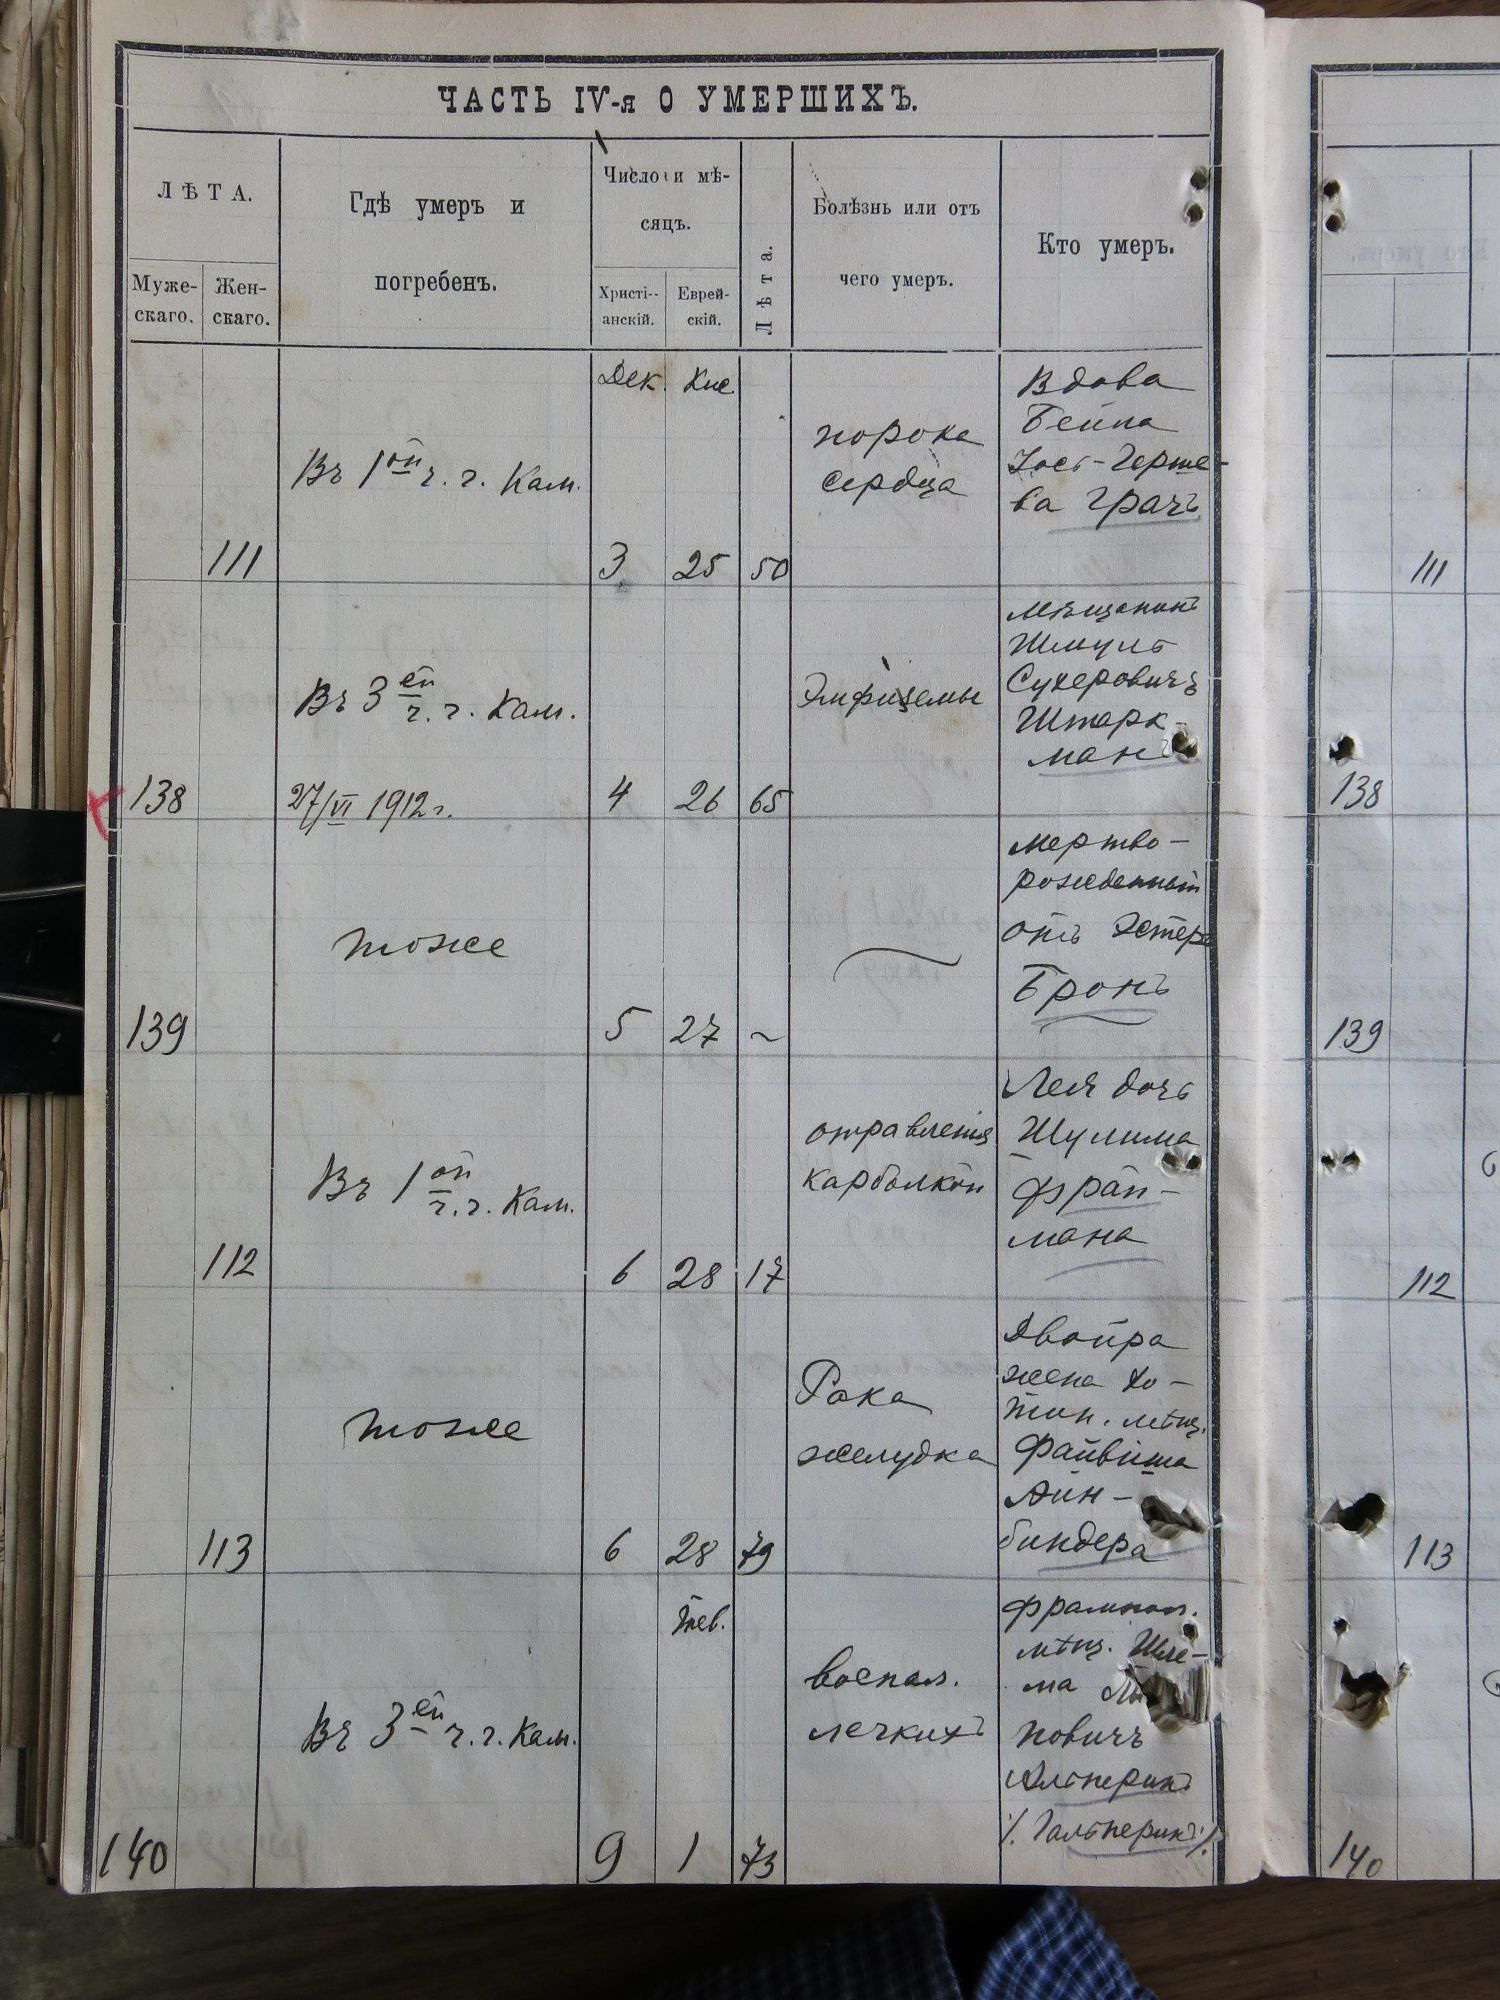 ЧАСТЬ IV-я О УМЕРШИХЪ.
ЛѢТА.
Муже-
скаго.
Жен-
скаго.
Гдѣ умеръ и
погребенъ.
Число и мѣ-
сяцъ.
Христі-
анскій.
Еврей-
скій.
Лѣта.
Болѣзнь или отъ
чего умеръ.
Кто умеръ.
Дек. Кис
111
Въ 1ой ч. г. Кам.
3 25 50
порока
сердца
Вдова
Бейла
Іось-Герше-
ва Грачъ
111
138
Въ 3ей ч. г. Кам.
27/VI 1912 г.
4 26 65
Эмфиземы
Мѣщанинъ
Шмуль
Сухеровичъ
Штарк-
манъ
138
139
тоже
5 27 ~
мертво-
рожденный
отъ Эстеры
Бронъ
139
112
Въ 1ой ч. г. Кам.
6 28 17
отравленія
карболкой
Лея дочь
Шулима
Фрай-
мана
112
113
тоже
6 28 79
Рака
желудка
Двойра
жена Хо-
тин. мѣщ.
Файвиша
Айн-
биндера
113
Тев.
140
Въ 3ей ч. г. Кам.
9 1 73
воспал.
легкихъ
Фрампол.
мѣщ. Шле-
ма
повичъ
Альперинъ
/. Гальперинъ ./
140